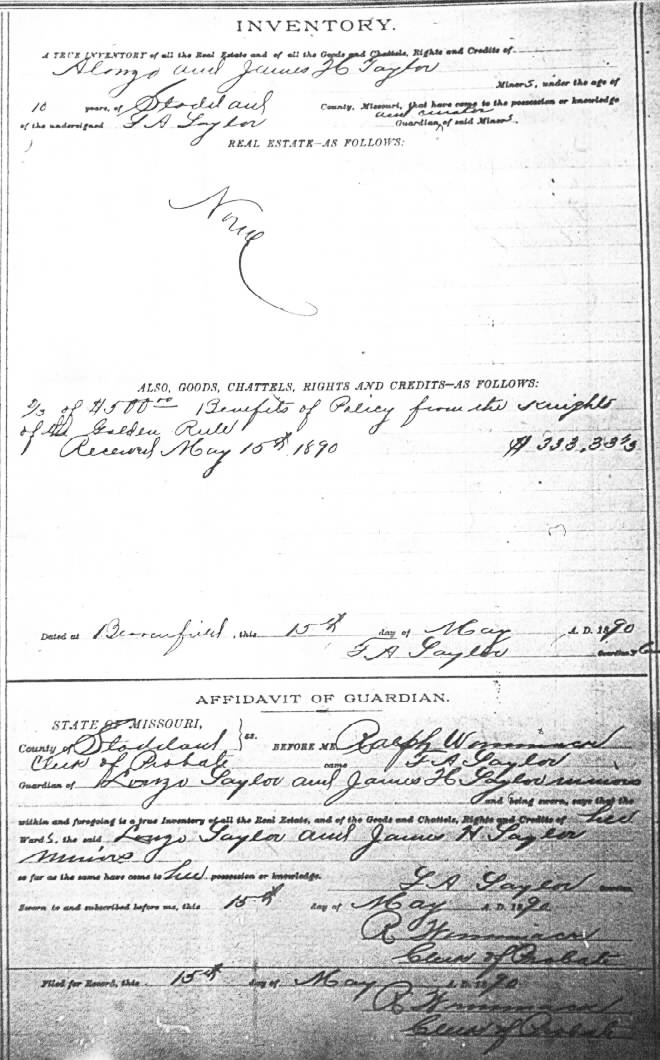 INVENTORY.
A TRUE INVENTORY of all the Real Estate and of all the Goods and Chattels, Rights and Credits of
Alonzo and James H Taylor
Minors, under the age of
10 years, of Stoddard County, Missouri, that have come to the possession or knowledge
and curator
of the undersigned F A Taylor Guardian, of said Minors.
REAL ESTATE—AS FOLLOWS:
None
ALSO, GOODS, CHATTELS, RIGHTS AND CREDITS—AS FOLLOWS:
2/3 of $500 00 Benefits of Policy from the Knights
of the Golden Rule
Received May 15th 1890 $ 333.33 1/3
Dated at , this 15th day of May A. D. 1890
F A Taylor Guardian
AFFIDAVIT OF GUARDIAN.
STATE OF MISSOURI,
County of Stoddard } ss. BEFORE ME Ralph Wommack
Clerk of Probate came F A Taylor
Guardian of Lonzo Taylor and James H Taylor minors
and being sworn, says that the
within and foregoing is a true Inventory of all the Real Estate, and of the Goods and Chattels, Rights and Credits of her
Wards, the said Lonzo Taylor and James H Taylor
minors
so far as the same have come to her possession or knowledge.
F A Taylor
Sworn to and subscribed before me, this 15th day of May A. D. 1890
R Wommack
Clerk of Probate
Filed for Record, this 15th day of May A. D. 1890
R Wommack
Clerk of Probate